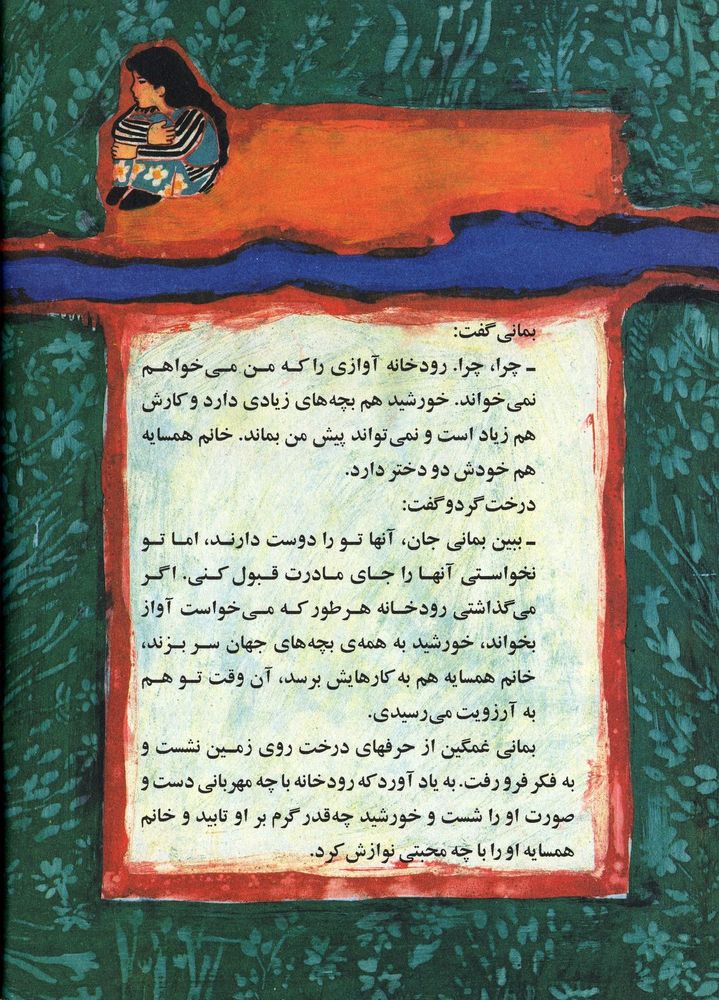 بمانی گفت:
ـ چرا، چرا. رودخانه آوازی را که من می‌خواهم
نمی‌خواند. خورشید هم بچه‌های زیادی دارد و کارش
هم زیاد است و نمی‌تواند پیش من بماند. خانم همسایه
هم خودش دو دختر دارد.
درخت گردو گفت:
ـ ببین بمانی جان، آنها تو را دوست دارند، اما تو
نخواستی آنها را جای مادرت قبول کنی. اگر
می‌گذاشتی رودخانه هرطور که می‌خواست آواز
بخواند، خورشید به همه‌ی بچه‌های جهان سر بزند،
خانم همسایه هم به کارهایش برسد، آن وقت تو هم
به آرزویت می‌رسیدی.
بمانی غمگین از حرفهای درخت روی زمین نشست و
به فکر فرو رفت. به یاد آورد که رودخانه با چه مهربانی دست و
صورت او را شست و خورشید چه‌قدر گرم بر او تابید و خانم
همسایه او را با چه محبتی نوازش کرد.